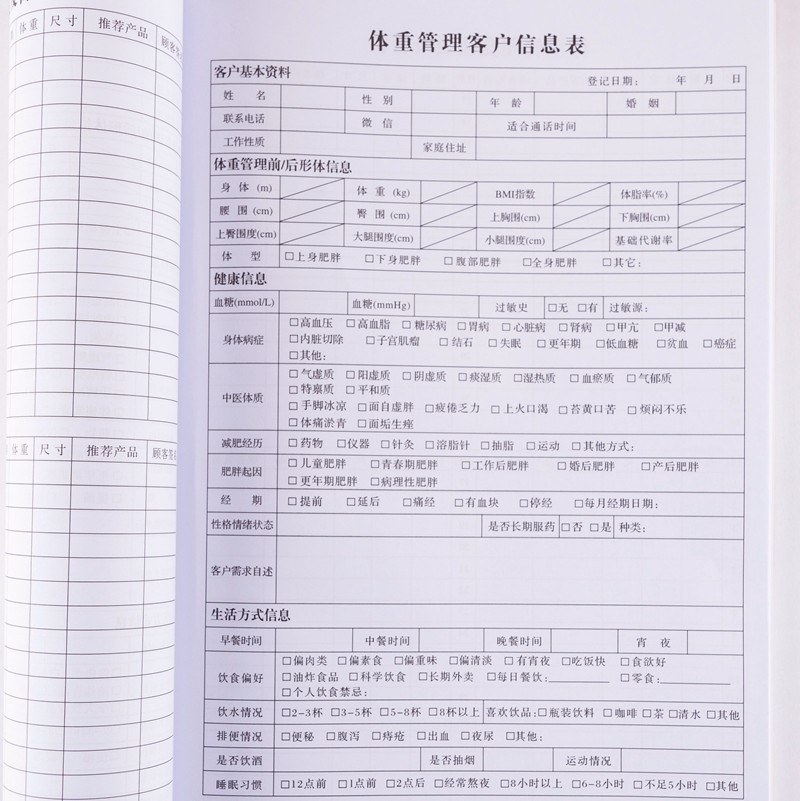 体重 尺寸 推荐产品
体重 尺寸 推荐产品 顾客签
体重管理客户信息表
客户基本资料 登记日期： 年 月 日
姓 名 性 别 年 龄 婚 姻
联系电话 微 信 适合通话时间
工作性质 家庭住址
体重管理前/后形体信息
身 体 (m) 体 重 (kg) BMI指数 体脂率(%)
腰 围 (cm) 臀 围 (cm) 上胸围(cm) 下胸围(cm)
上臀围度(cm) 大腿围度(cm) 小腿围度(cm) 基础代谢率
体 型 □上身肥胖 □下身肥胖 □腹部肥胖 □全身肥胖 □其它：
健康信息
血糖(mmol/L) 血糖(mmHg) 过敏史 □无 □有 过敏源：
身体病症 □高血压 □高血脂 □糖尿病 □胃病 □心脏病 □肾病 □甲亢 □甲减
□内脏切除 □子宫肌瘤 □结石 □失眠 □更年期 □低血糖 □贫血 □癌症
□其他：
中医体质 □气虚质 □阳虚质 □阴虚质 □痰湿质 □湿热质 □血瘀质 □气郁质
□特禀质 □平和质
□手脚冰凉 □面自虚胖 □疲倦乏力 □上火口渴 □苔黄口苦 □烦闷不乐
□体痛淤青 □面垢生痤
减肥经历 □药物 □仪器 □针灸 □溶脂针 □抽脂 □运动 □其他方式：
肥胖起因 □儿童肥胖 □青春期肥胖 □工作后肥胖 □婚后肥胖 □产后肥胖
□更年期肥胖 □病理性肥胖
经 期 □提前 □延后 □痛经 □有血块 □停经 □每月经期日期：
性格情绪状态 是否长期服药 □否 □是 种类：
客户需求自述
生活方式信息
早餐时间 中餐时间 晚餐时间 宵 夜
饮食偏好 □偏肉类 □偏素食 □偏重味 □偏清淡 □有宵夜 □吃饭快 □食欲好
□油炸食品 □科学饮食 □长期外卖 □每日餐饮：________ □零食：________
□个人饮食禁忌：
饮水情况 □2-3杯 □3-5杯 □5-8杯 □8杯以上 喜欢饮品：□瓶装饮料 □咖啡 □茶 □清水 □其他
排便情况 □便秘 □腹泻 □痔疮 □出血 □夜尿 □其他：
是否饮酒 是否抽烟 运动情况
睡眠习惯 □12点前 □1点前 □2点后 □经常熬夜 □8小时以上 □6-8小时 □不足5小时 □其他